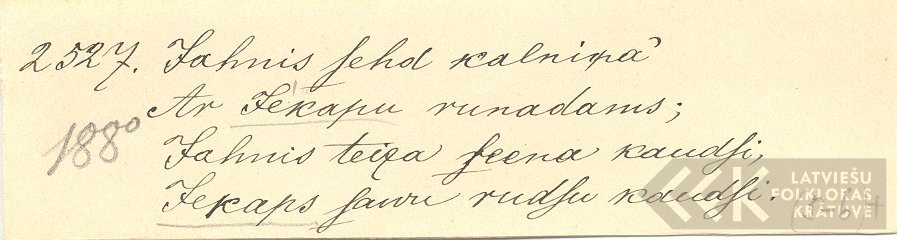 2527. Jahnis ſehd kalniņâ
Ar Jekapu runadams;
1880
Jahnis teiza ſeena kaudſi,
Jekaps ſawu rudſu kaudſi.
LATVIEŠU
FOLKLORAS
KRĀTUVE